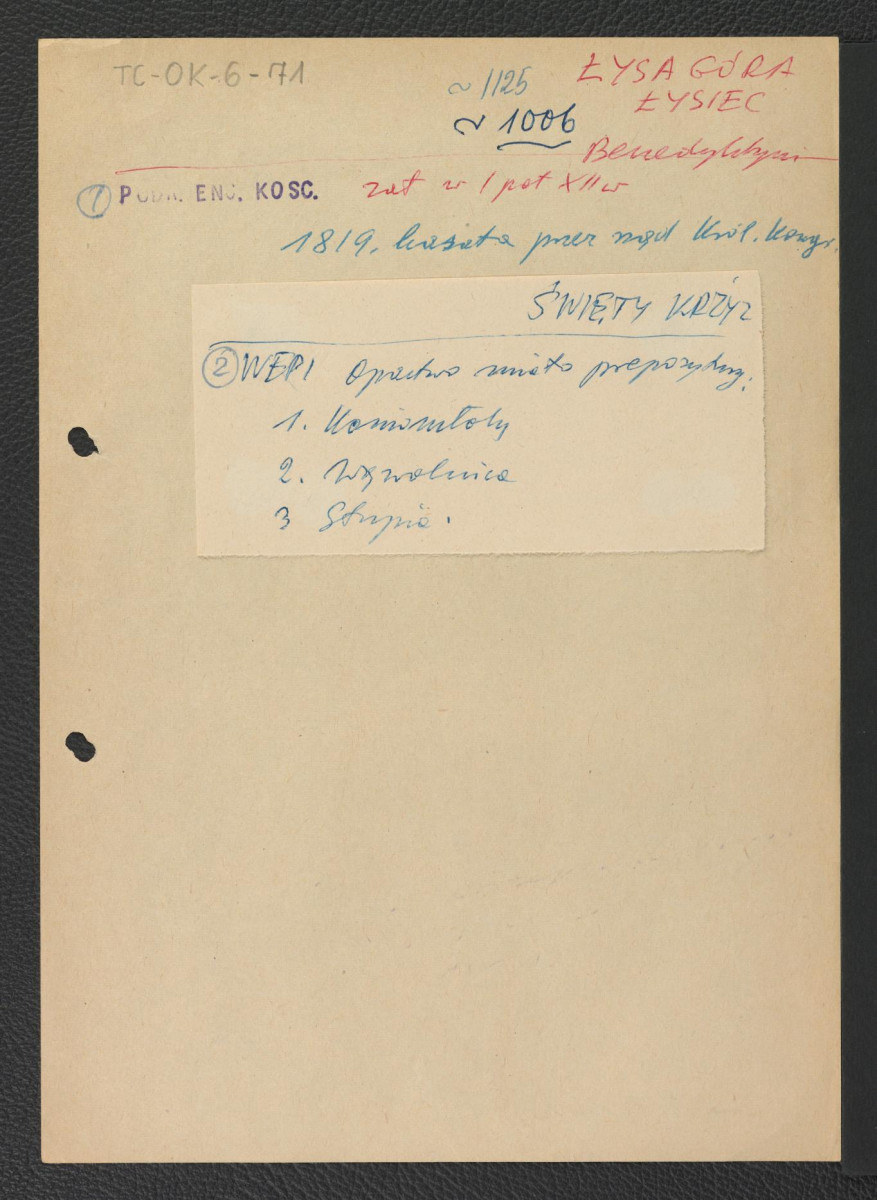 TC-OK-6-71
~ 1125
ŁYSA GÓRA
ŁYSIEC
~ 1006
Benedyktyni
1 PODR. ENC. KOSC.
zał w I poł XII w
1819. kasata przez rząd Król. Kongr.
ŚWIĘTY KRZYŻ
2 WEPI Opactwo miało prepozytury:
1. Koniemłoty
2. Wąwolnica
3 Słupia.